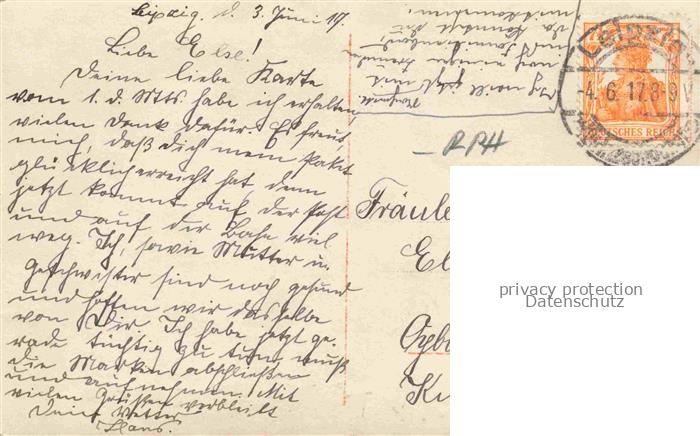 Leipzig. d. 3. Juni 17.
Liebe Else!
Deine liebe Karte
vom 1. d. Mts. habe ich erhalten
vielen Dank dafür. Es freut
mich, daß Dich mein Paket
glücklich erreicht hat, denn
jetzt kommt auf der Post
und auf der Bahn viel
weg. Ich, sowie Mutter u.
Geschwister sind noch gesund
und hoffen wir dasselbe
von Dir. Ich habe jetzt ge-
rade tüchtig zu tun, muß
die Marken abschließen
und aufnehmen. Mit
vielen Grüßen verbleibt
Dein Vetter
Hans.
- RPH
Leipzig
-4.6.17.8-9V
DEUTSCHES REICH
Fräule
El
privacy protection
Datenschutz